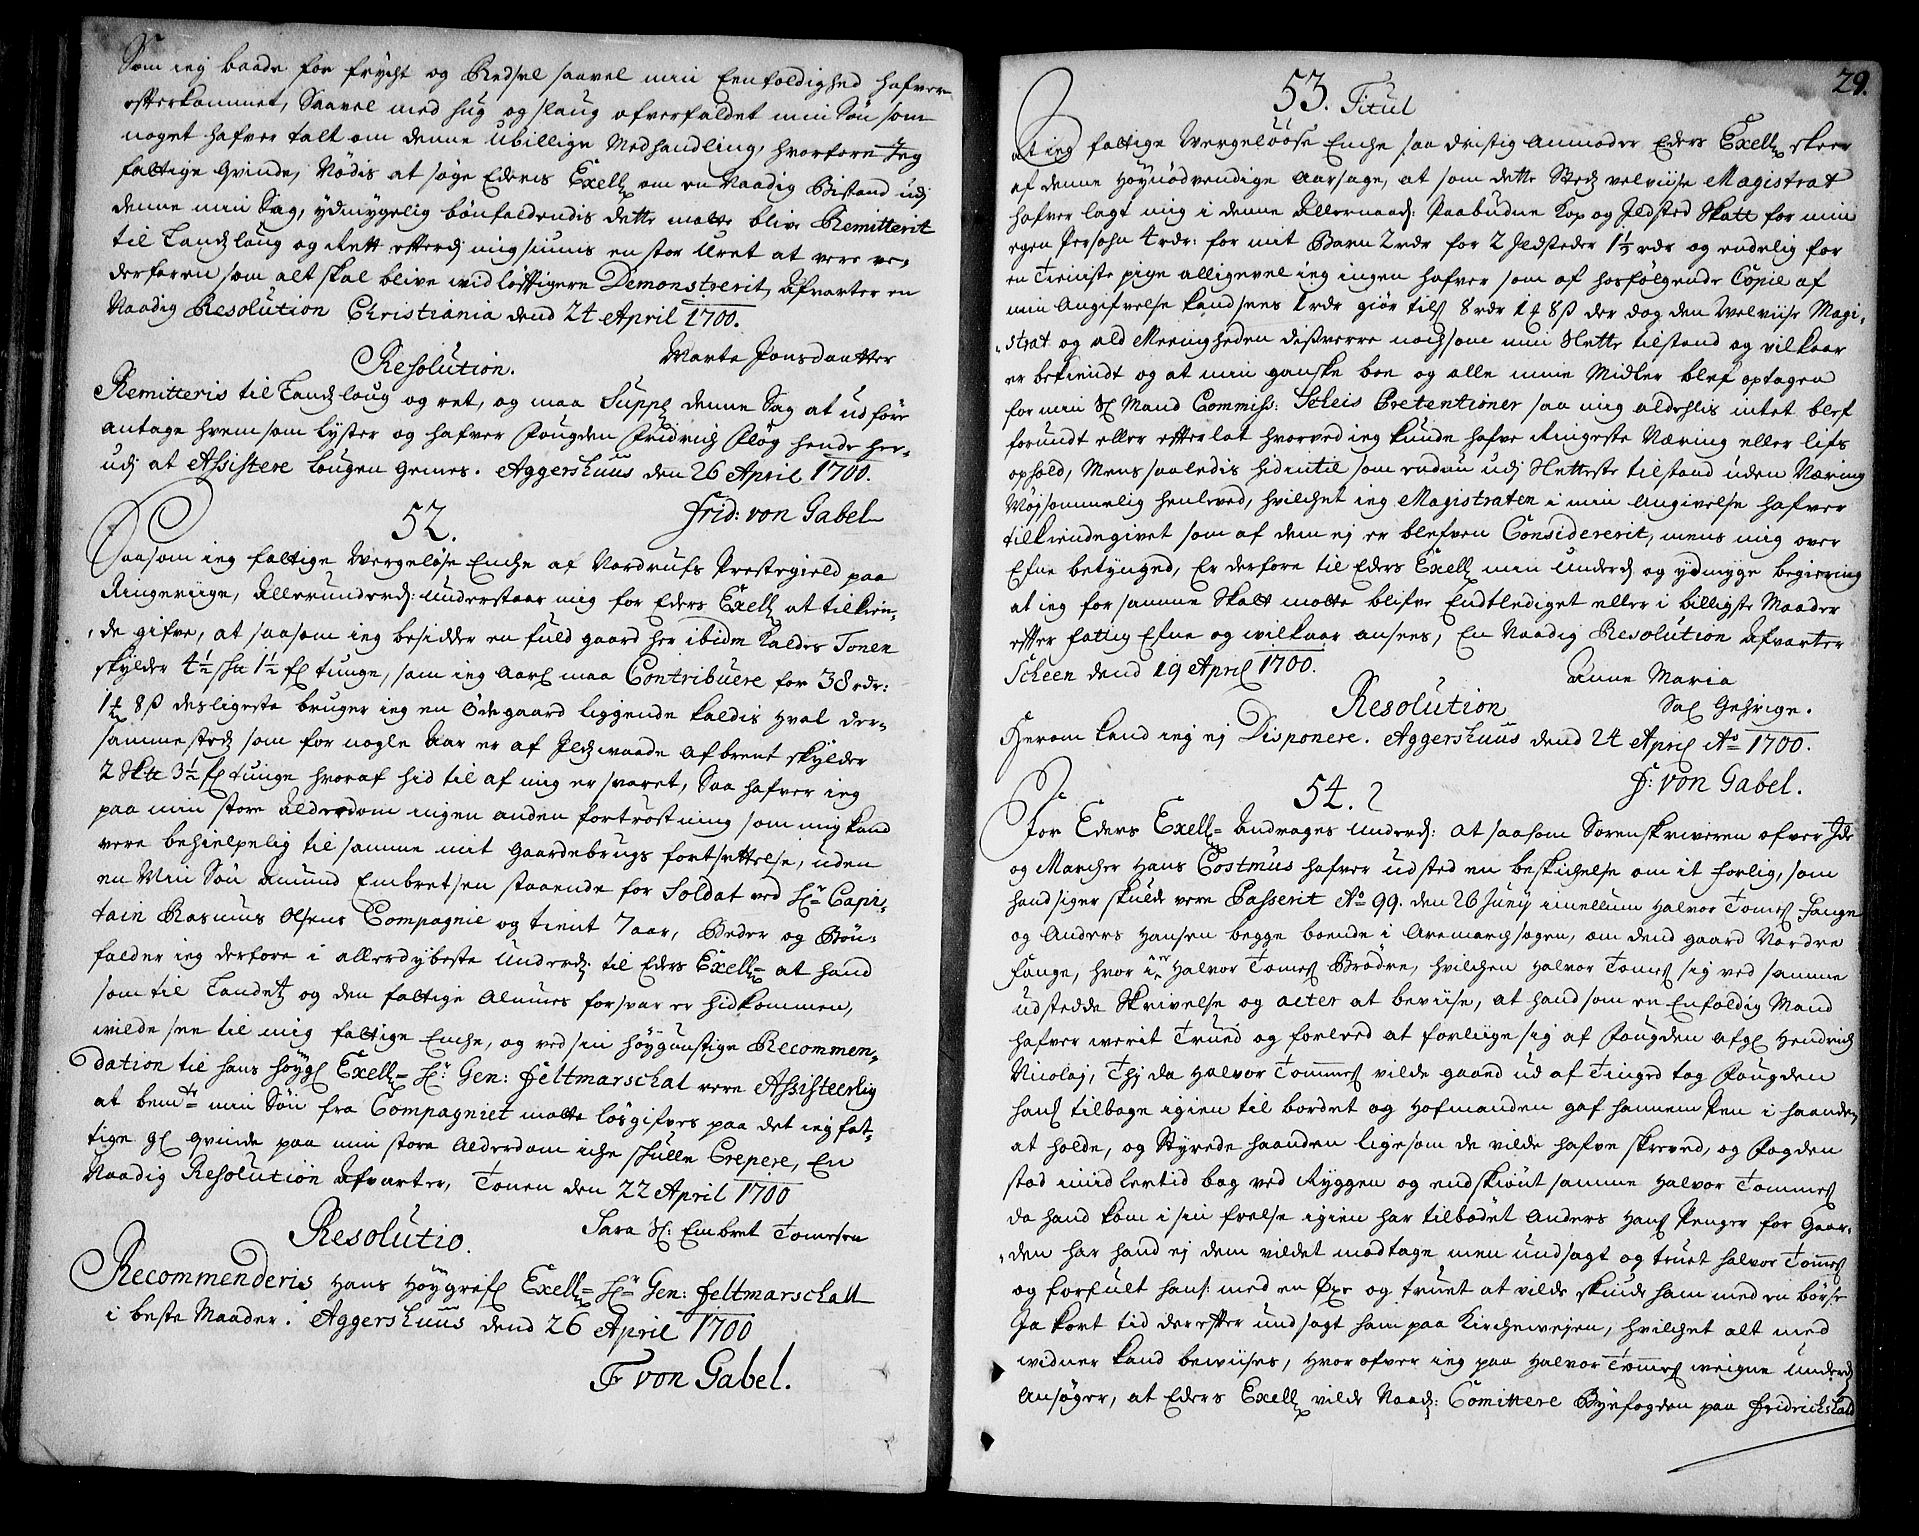 Som ieg baade for frycht og Redsel saavel min Eenfoldighed hafver
efterkommet, Saavel med hug og slaug ofverfaldet min Søn som
noget hafver talt om denne ubillige Medhandling, hvorfore Jeg
fattige Qvinde, Nødis at søge Eders Excell om en Naadig Bistand udj
denne min Sag, ydmygelig bønfaldendis dette motte blive Remitterit
til Landslaug og Rett efterdj mig siunis en stor Uret at vere ve-
derfaren som alt skal blive widløftigere Demonstrerit, Afvarter en
Naadig Resolution Christiania dend 24 April 1700.
Marte Jonsdaatter
Resolution.
Remitteris til Landslaug og ret, og maa Suppl denne Sag at udføre
antage hvem som lyster og hafver Fougden Fridrich Pløg hende her-
udj at Assistere Lougen Gemes. Aggershuus den 26 April 1700.
Frid: von Gabel
52.
Saasom ieg fattige Wergeløse Enche af Nordrufs Prestegield paa
Ringeriige, Allerunderd: understaar mig for Eders Excell at tilkien-
de gifve, at saasom ieg besidder en fuld gaard her ibidm kaldes Tonen
skylder 4½ schl 1½ fl tunge, som ieg Aarl maa Contribuere for 38 rdr:
1 £ 8 ß desligeste bruger ieg en Ødegaard liggende kaldis Hval der-
sammesteds som for nogle Aar er af Ildswaade afbrent skylder
2 Sktt 3½ fl tunge hvoraf hid til af mig er svaret, Saa hafver ieg
paa min store Alderdom ingen anden fortrøstning som mig kand
vere behielpelig til samme mit Gaardebrugs fortsettelse, uden
en Min Søn Amund Embretsen staaende for Soldat ved Hr Capi-
tain Rasmus Olsens Compagnie og tient 7 aar, Beder og Bøn-
falder ieg derfore i allerdybeste Underd: til Eders Excell at hand
som til Landets og den fattige Almues forsvar er hidkommen,
wilde see til mig fattige Enche, og ved sin Høygunstige Recommen-
dation til hans Høygl Excell Hr Gen: Feltmarschal vere Assisteerlig
at bemte min Søn fra Compagniet motte løsgifves paa det ieg fat-
tige gl qvinde paa min store Alderdom iche schulle Crepere, En
Naadig Resolution Afvarter, Tonen den 22 April 1700
Sara Sl: Embret Tomesen
Resolutio.
Recommenderis Hans Høygrefl Excell Hr Gen: Feltmarschall
i beste Maader. Aggershuus dend 26 April 1700
Fr von Gabel.
29.
53. Titul
At ieg fattige Wergeløøse Enche saa dristig Anmoder Eders Excell skeer
af denne Høynødvendige Aarsage, at som dette Steds velviise Magistrat
hafver lagt mig i denne Allernaad: Paabudne Kop og Ildsted Skatt for min
egen Persohn 4 rdr: for mit Barn 2 rdr for 2 Ildsteder 1⅓ rdr og endelig for
en Tieniste pige alligevel ieg ingen hafver som af hosfølgende Copie af
min Angifvelse kand sees 1 rdr giør tils 8 rdr 1 £ 8 ß der dog den Welviise Magi-
strat og ald Meenigheden dissverre nochsom min Slette tilstand og vilkaar
er bekiendt og at min ganske boe og alle mine Midler blef optagen
for min Sl Mand Commiss: Scheis Pretentioner saa mig aldehlis intet blef
forundt eller efterlat hvorved ieg kunde hafve Ringeste Næring eller lifs
ophold, Mens saaledis hidintil som endnu udj Sletteste tilstand uden Næring
Møjsommelig henleved, hvilchet ieg Magistraten i min Angivelse hafver
tilkiendegivet som af dem ej er blefven Considererit, mens mig over
Efne betynged, Er derfore til Eders Excell min Underd og ydmyge begiering
at ieg for samme Skatt motte blifve Endtlediget eller i billigste Maader
efter fattig Efne og wilkaar ansees, En Naadig Resolution Afvarter
Scheen dend 19 April 1700.
Anne Maria
Sal Gehrige.
Resolution
Herom kand ieg ej Disponere. Aggershuus dend 24 April Ao 1700.
F: von Gabel.
54.
For Eders Excell Andrages Underd: at saasom Sorenskriveren ofver Ide
og Marcher Hans Costmus hafver udsted en beskichelse om it forlig, som
hand siger skulde vere Passerit Ao 99. den 26 Junij imellum Halvor Tomes Fange
og Anders Hansen begge boende i Aremarch sogen, om dend gaard Nordre
Fange, hvor i er Halvor Tomes Brødre, hvilchen Halvor Tomes sig ved samme
udstedde Skrivelse og acter at beviise, at hand som en Enfoldig Mand
hafver werit Trued og forleed at forliige sig af Fougden afgl Hendrich
Nicolaj, Thj da Halvor Tommes vilde gaaed ud af Tinged tog Fougden
hans tilbage igien til bordet og Hofmanden gaf hannem Pen i haanden
at holde, og Styrede haanden ligesom de vilde hafve skreved, og Fogden
stod imidlertid bag ved Ryggen og endskiønt samme Halvor Tommes
da hand kom i sin frelse igien har tilbødet Anders Hans Penger for Gaar-
den har hand ej dem vildet modtage men undsagt og truet Halvor Tommes
og forfult hans: med en Øxe og truet at vilde skiude ham med en børse
Ja kort tid derefter undsagt ham paa Kirchevejen, hvilchet alt med
widner kand bewiises, Hvor ofver ieg paa Halvor Tommes weigne underd
Ansøger, at Eders Excell vilde Naad: Comittere Byefogden paa Fridrichshald